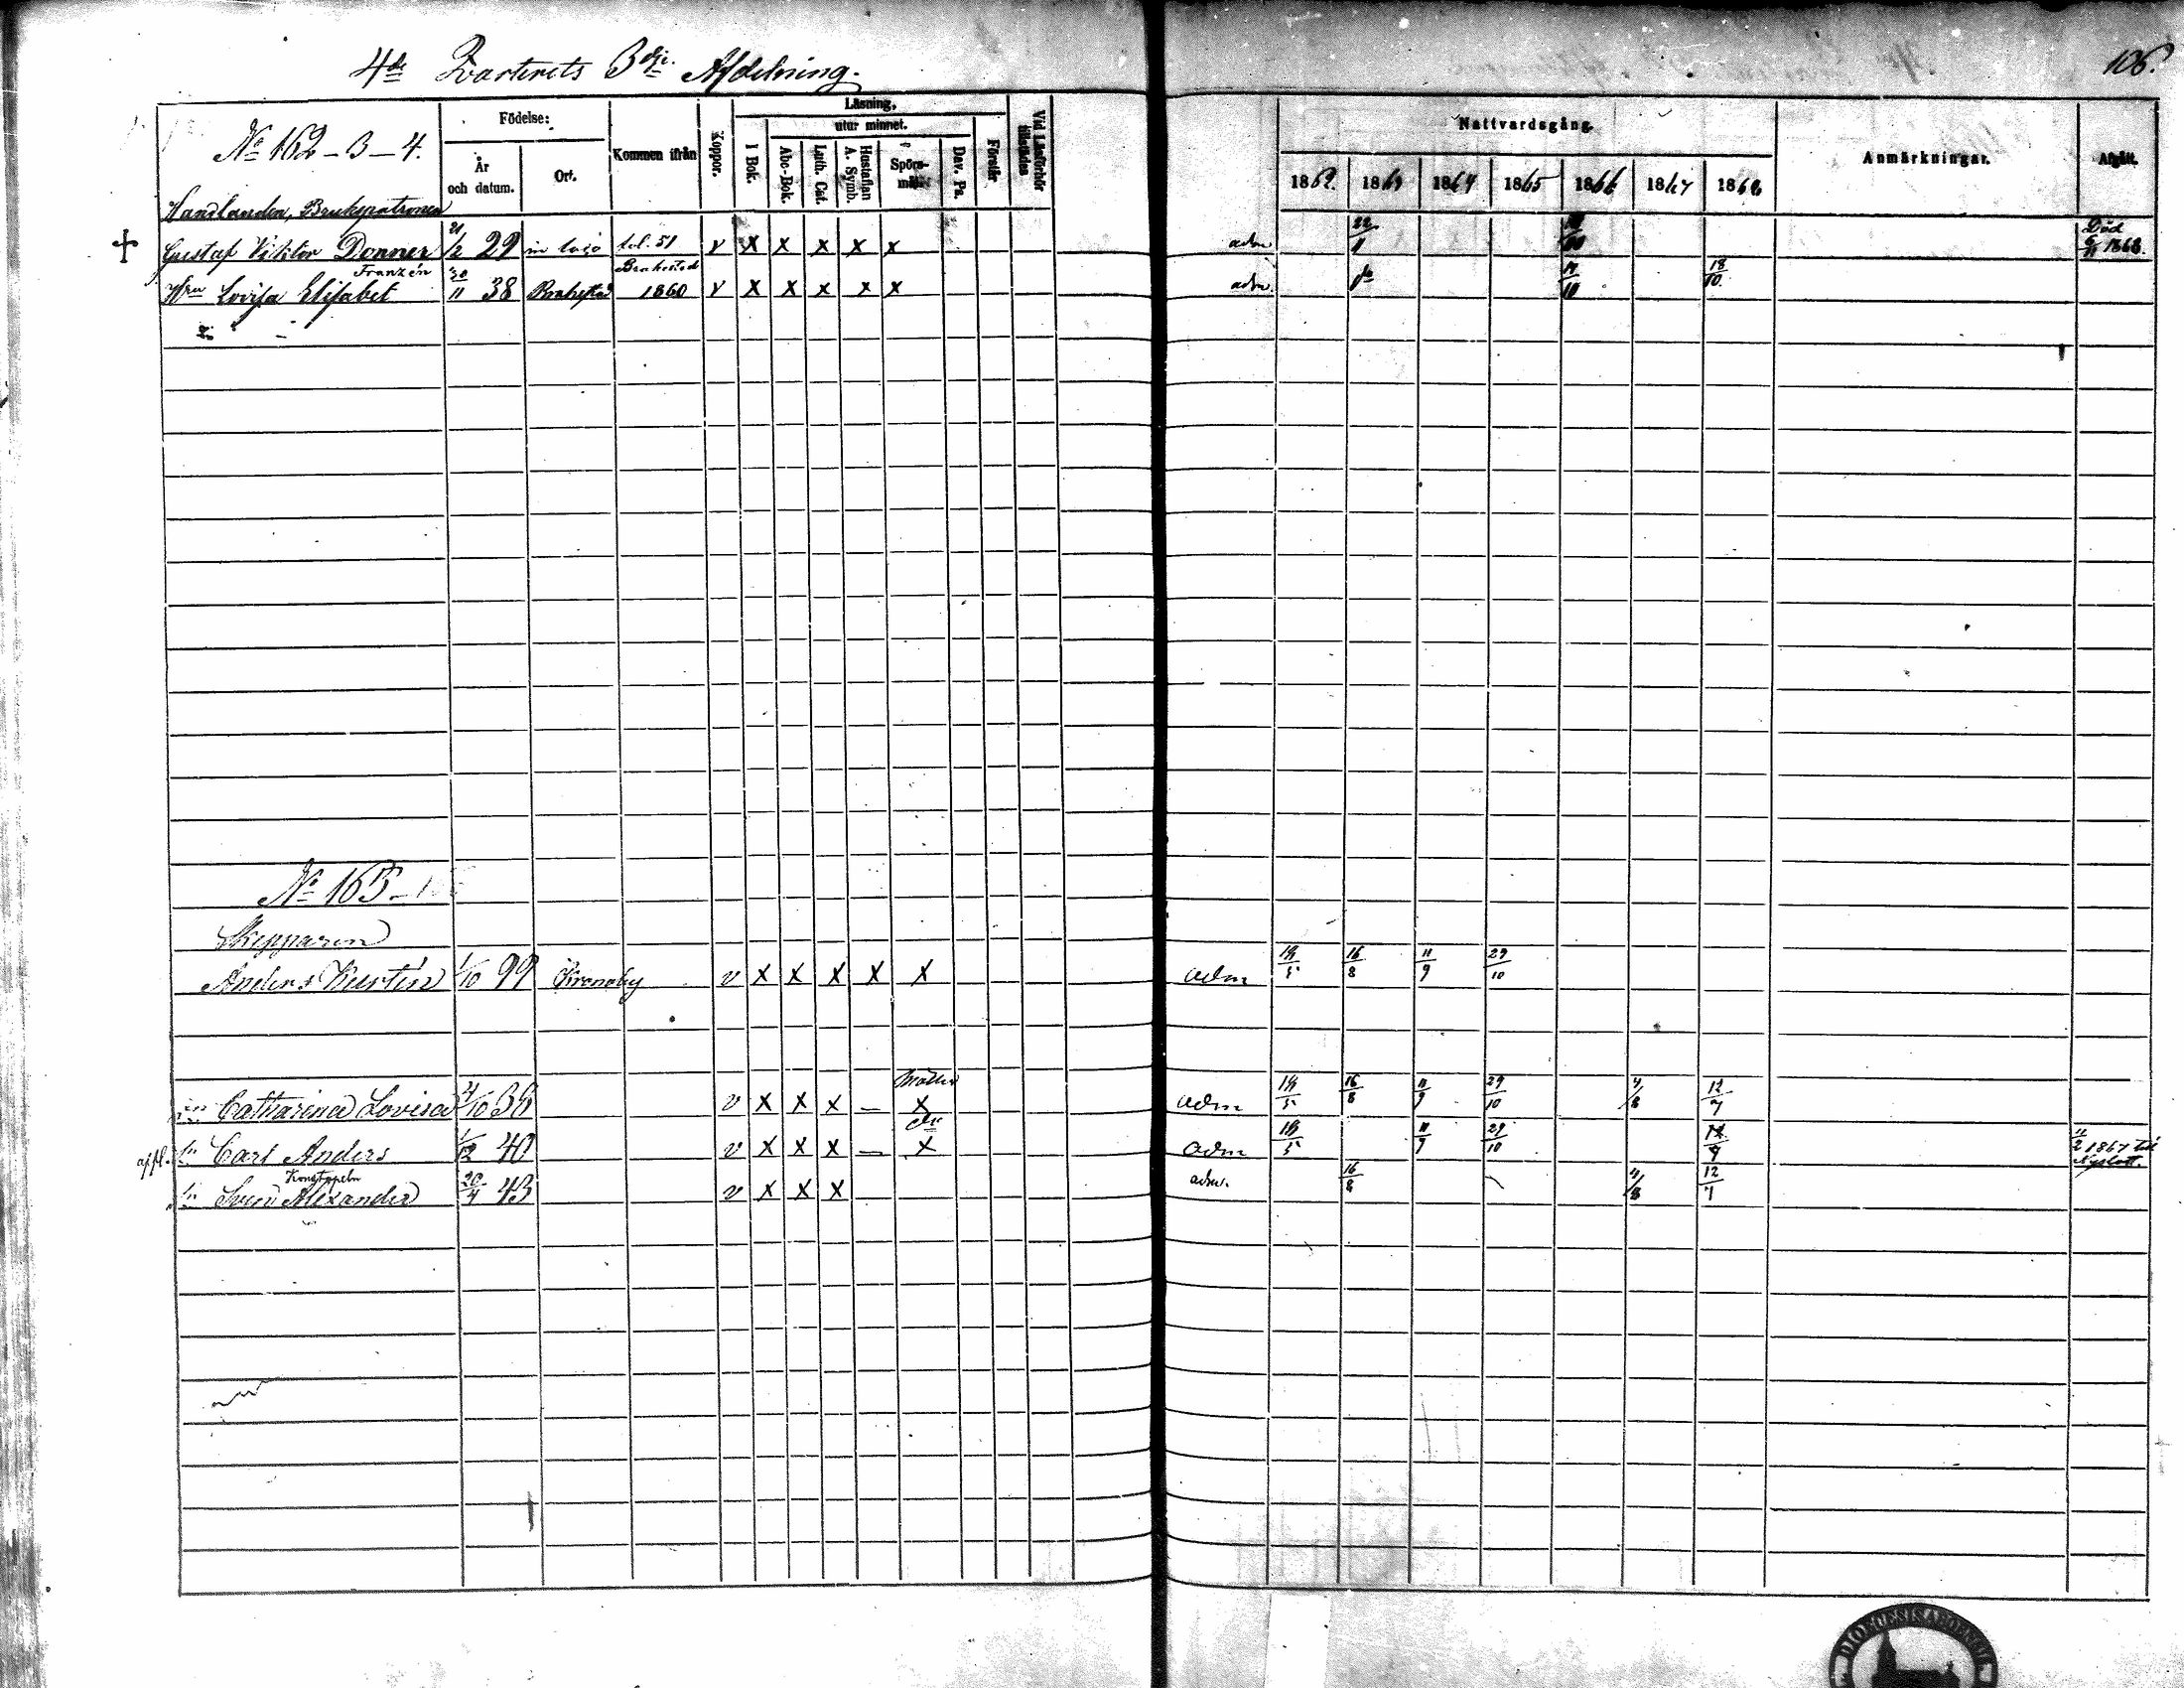 4de Qvarterets 3dje Afdelning.
106.
No 162-3-4.
Födelse:
År och datum.
Ort.
Kommen ifrån
Koppor.
Läsning,
utur minnet.
I Bok.
Abc-Bok.
Luth. Cat.
Hustaflan A. Symb.
Spörs-mål.
Dav. Ps.
Förstår
Vid Läsförhör tillstädes
Nattvardsgång.
1862. 1863 1864 1865 1866 1867 1868
Anmärkningar.
Afgått.
Handlanden, Brukspatronen
Gustaf Viktor Donner 21/2 29 in loco fol. 51 v x x x x x adm 22/11 Död 1868.
Franzén
Hru Lovisa Elisabet 30/11 38 Brahestad Brahestad 1860 v x x x x x adm. do 14/10 18/10
No 165-
Skepparen
Anders Kerstin 1/10 99 Kronoby v x x x x x adm 18/5 16/8 11/9 29/10
Catharina Lovisa 4/10 38 v x x x — x adm 18/5 16/8 11/9 29/10 4/8 12/7
Sn Carl Anders 1/12 40 v x x x — x adm 18/5 11/9 29/10 11/2 1867 till Nyslott.
Konstapeln
Sn Sven Alexander 20/4 43 v x x x adm. 16/8 4/8 12/7
DIOECESIS ABOENSIS